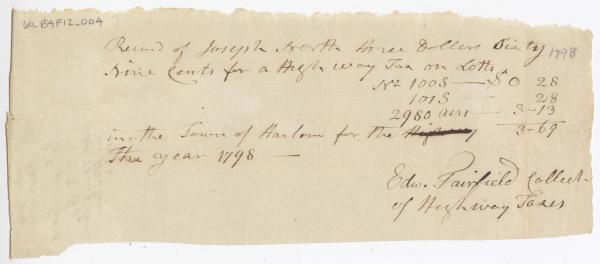 62 B4F12_004
Recivd of Joseph North three Dollars Sixty
1798
Nine Cents for a High Way Tax on Lotts
No 100S — $0 28
101S — 28
2980 acrs — 3-13
3-69
in the Town of Harlom for the Highway
the year 1798 —
Edw. Fairfield Collect
of Highway Taxes